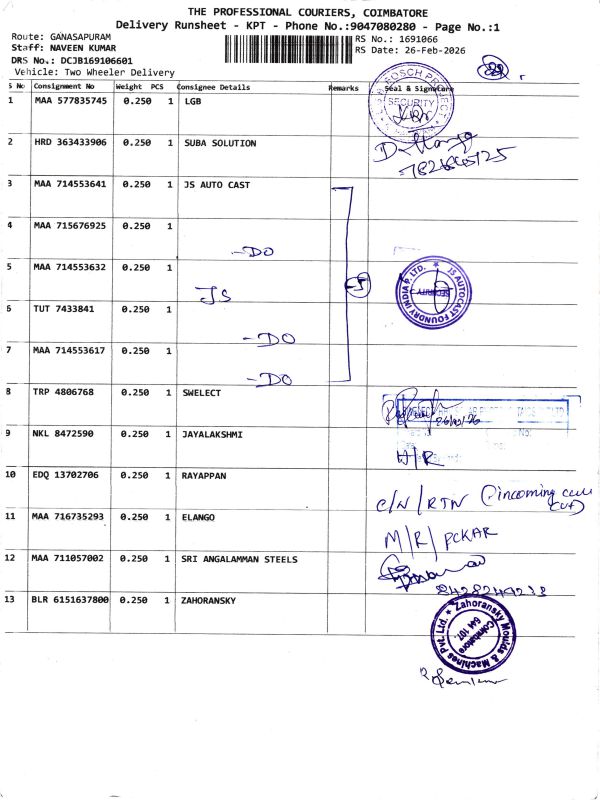 THE PROFESSIONAL COURIERS, COIMBATORE
Delivery Runsheet - KPT - Phone No.:9047080280 - Page No.:1
Route: GANASAPURAM
RS No.: 1691066
Staff: NAVEEN KUMAR
RS Date: 26-Feb-2026
DRS No.: DCJB169106601
Vehicle: Two Wheeler Delivery
S No Consignment No Weight PCS Consignee Details Remarks Seal & Signature
1 MAA 577835745 0.250 1 LGB
BOSCH PROJECT
SECURITY
2 HRD 363433906 0.250 1 SUBA SOLUTION
3 MAA 714553641 0.250 1 JS AUTO CAST
4 MAA 715676925 0.250 1
-DO
5 MAA 714553632 0.250 1
JS
5
JS AUTOCAST FOUNDRY INDIA P. LTD.
SECURITY
6 TUT 7433841 0.250 1
-DO
7 MAA 714553617 0.250 1
-DO
8 TRP 4806768 0.250 1 SWELECT
9 NKL 8472590 0.250 1 JAYALAKSHMI
N/R
10 EDQ 13702706 0.250 1 RAYAPPAN
C/N/RTN (incoming call cut)
11 MAA 716735293 0.250 1 ELANGO
M/R/PCKAR
12 MAA 711057002 0.250 1 SRI ANGALAMMAN STEELS
13 BLR 6151637800 0.250 1 ZAHORANSKY
Zahoransky Moulds & Machines Pvt. Ltd.
Coimbatore
641 107.